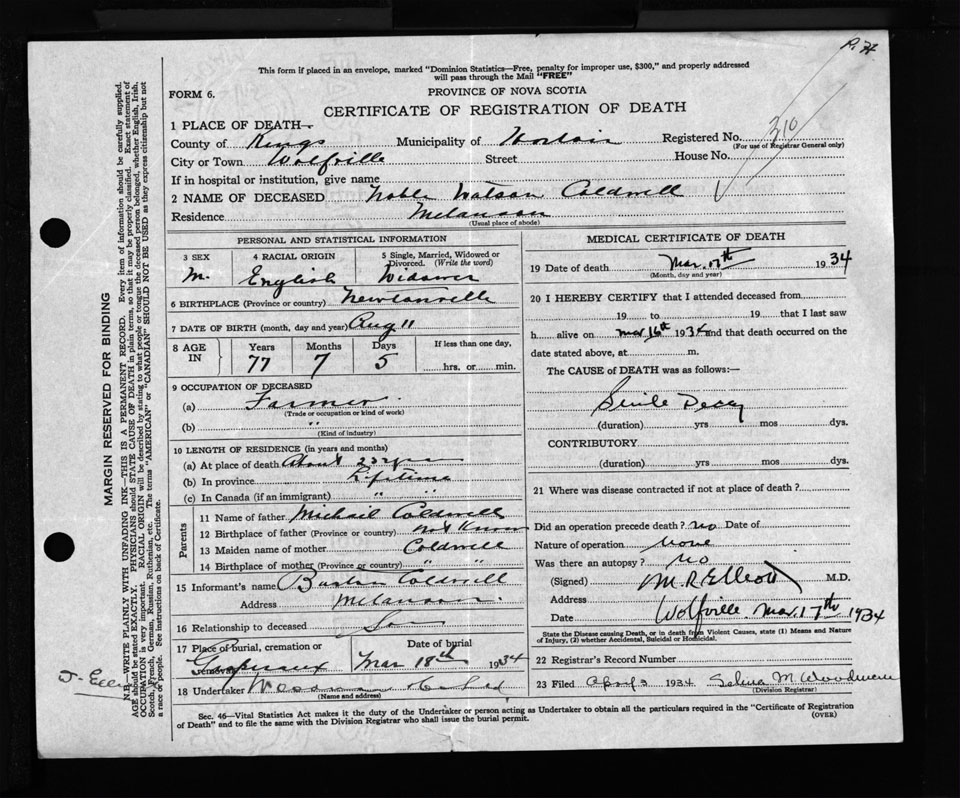 This form if placed in an envelope, marked "Dominion Statistics—Free, penalty for improper use, $300," and properly addressed
will pass through the Mail "FREE"
FORM 6.
PROVINCE OF NOVA SCOTIA
CERTIFICATE OF REGISTRATION OF DEATH
310
1 PLACE OF DEATH—
County of Kings Municipality of Registered No.
(For use of Registrar General only)
City or Town Wolfville Street House No.
If in hospital or institution, give name
2 NAME OF DECEASED Noble Watson Coldwell
Residence Melanson
(Usual place of abode)
PERSONAL AND STATISTICAL INFORMATION
3 SEX 4 RACIAL ORIGIN 5 Single, Married, Widowed or Divorced. (Write the word)
M. English Widower
6 BIRTHPLACE (Province or country) Newtonville
7 DATE OF BIRTH (month, day and year) Aug 11
8 AGE IN Years Months Days If less than one day,
77 7 5 hrs. or min.
9 OCCUPATION OF DECEASED
(a) Farmer
(Trade or occupation or kind of work)
(b) "
(Kind of industry)
10 LENGTH OF RESIDENCE (in years and months)
(a) At place of death About
(b) In province Lifetime
(c) In Canada (if an immigrant) " "
Parents
11 Name of father Michael Coldwell
12 Birthplace of father (Province or country) not Known
13 Maiden name of mother Coldwell
14 Birthplace of mother (Province or country) "
15 Informant's name Coldwell
Address Melanson
16 Relationship to deceased Son
17 Place of burial, cremation or removal Date of burial
Gaspereaux Mar 18th 1934
18 Undertaker
(Name and address)
MEDICAL CERTIFICATE OF DEATH
19 Date of death Mar. 17th 1934
(Month, day and year)
20 I HEREBY CERTIFY that I attended deceased from
19 to 19 that I last saw
h alive on Mar 16th 1934 and that death occurred on the
date stated above, at m.
The CAUSE of DEATH was as follows:—
Senile Decay
(duration) yrs mos dys.
CONTRIBUTORY
(duration) yrs mos dys.
21 Where was disease contracted if not at place of death?
Did an operation precede death? no Date of
Nature of operation None
Was there an autopsy? no
(Signed) M. R. Elliott M.D.
Address
Date Wolfville Mar. 17th 1934
State the Disease causing Death, or in death from Violent Causes, state (1) Means and Nature
of Injury, (2) whether Accidental, Suicidal or Homicidal.
22 Registrar's Record Number
23 Filed April 3 1934 Selina M Woodman
(Division Registrar)
Sec. 46—Vital Statistics Act makes it the duty of the Undertaker or person acting as Undertaker to obtain all the particulars required in the "Certificate of Registration
of Death" and to file the same with the Division Registrar who shall issue the burial permit.
(OVER)
MARGIN RESERVED FOR BINDING
N.B.—WRITE PLAINLY WITH UNFADING INK—THIS IS A PERMANENT RECORD. Every item of information should be carefully supplied.
AGE should be stated EXACTLY. PHYSICIANS should STATE CAUSE OF DEATH in plain terms, so that it may be properly classified. Exact statement of
OCCUPATION is very important. RACIAL ORIGIN will be described by stating to what people or tongue the deceased person belonged, whether English, Irish,
Scotch, French, German, Russian, Ruthenian, etc. The terms "AMERICAN" or "CANADIAN" SHOULD NOT BE USED as they express citizenship but not
a race or people. See instructions on back of Certificate.